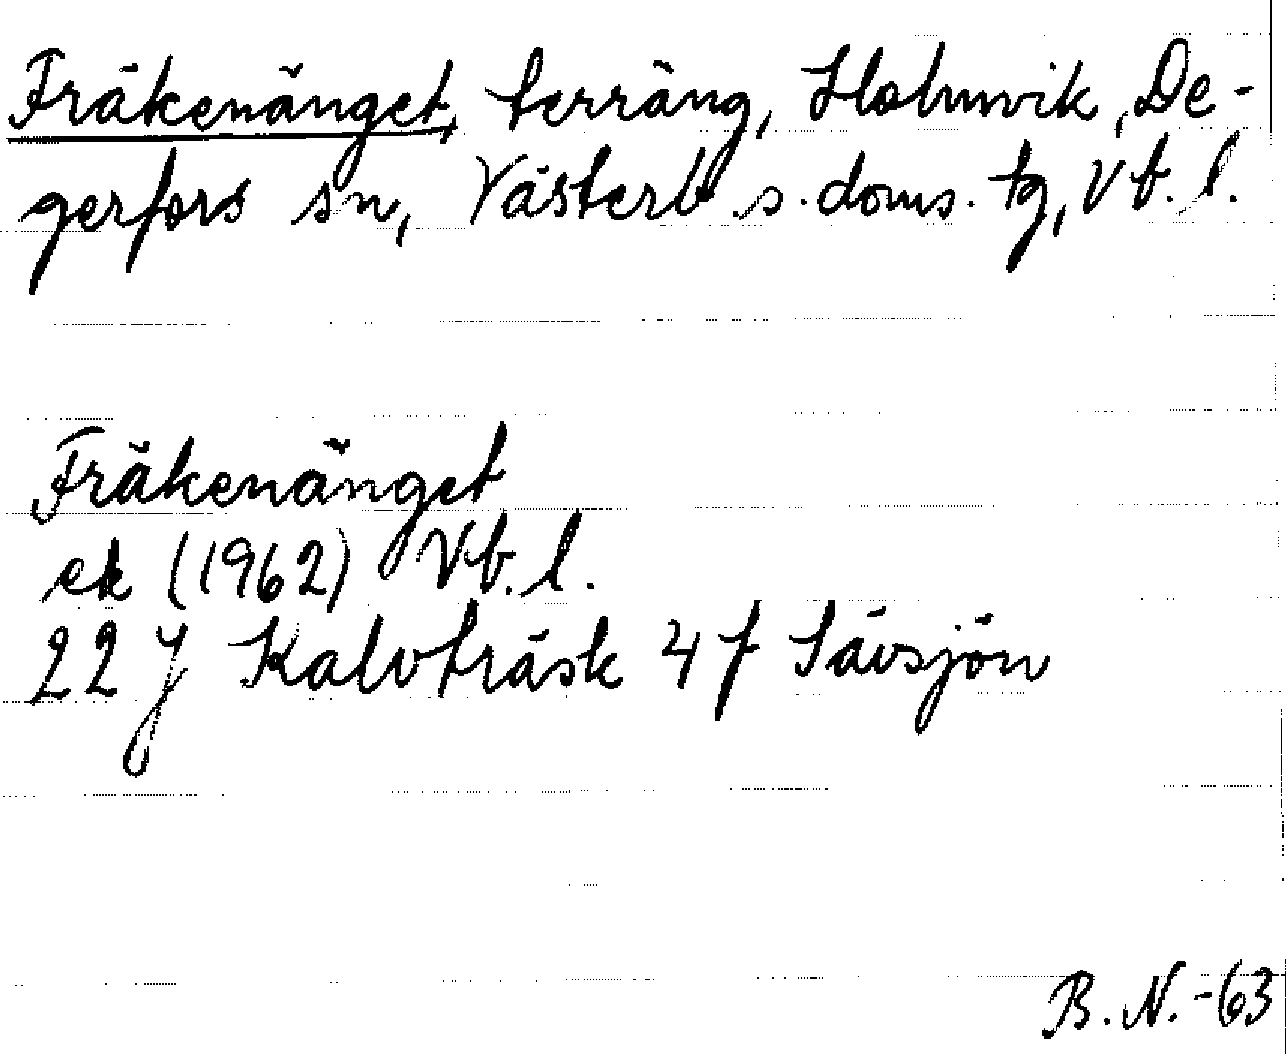 Fräkenänget, terräng, Holmvik, De-
gerfors sn, Västerb. s. doms. tg, Vb. l.
Fräkenänget
ek (1962) Vb. l.
22 J Kalvträsk 4 f Sävsjön
B. N. -63